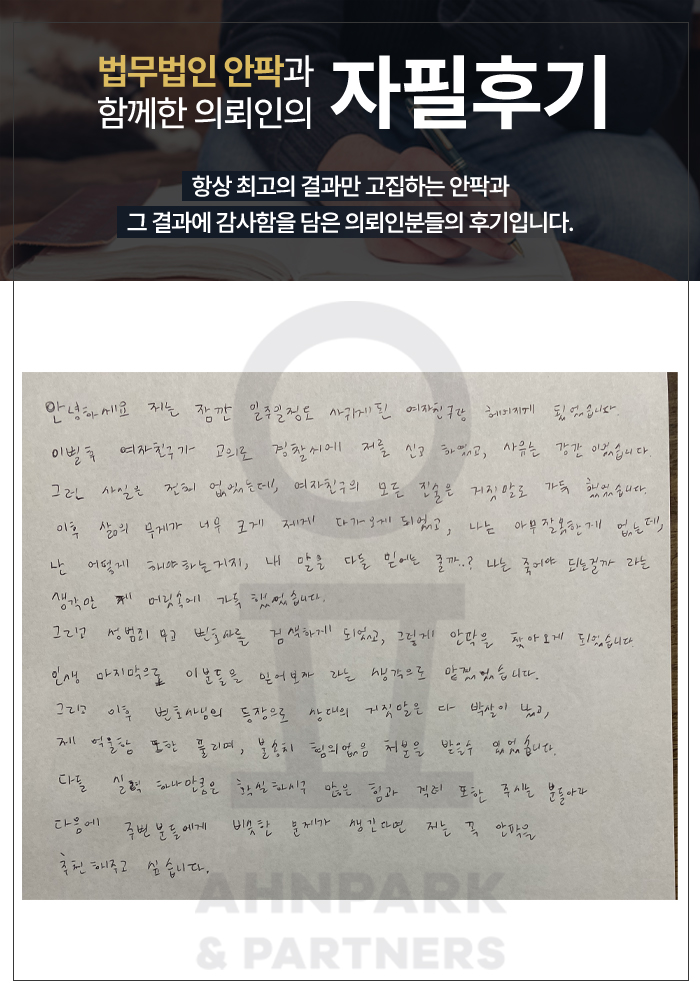 법무법인 안팍과
함께한 의뢰인의
자필후기
항상 최고의 결과만 고집하는 안팍과
그 결과에 감사함을 담은 의뢰인분들의 후기입니다.
안녕하세요 저는 잠깐 일주일정도 사귀게된 여자친구랑 헤어지게 됬었습니다.
이별후 여자친구가 고의로 경찰서에 저를 신고 하였고, 사유는 강간 이었습니다.
그런 사실은 전혀 없었는데, 여자친구의 모든 진술은 거짓말로 가득 했었습니다.
이후 삶의 무게가 너무 크게 제게 다가오게 되었고, 나는 아무잘못한게 없는데,
난 어떻게 해야하는거지, 내 말을 다들 믿어는 줄까..? 나는 죽어야 되는걸까 라는
생각만 제 머릿속에 가득 했었습니다.
그리고 성범죄 무고 변호사를 검색하게 되었고, 그렇게 안팍을 찾아오게 되었습니다.
인생 마지막으로 이분들을 믿어보자 라는 생각으로 맡겼었습니다.
그리고 이후 변호사님의 등장으로 상대의 거짓말은 다 박살이 났고,
제 억울함 또한 풀리며, 불송치 혐의없음 처분을 받을수 있었습니다.
다들 실력 하나만큼은 확실하시구 많은 힘과 격려 또한 주시는 분들이라
다음에 주변분들에게 비슷한 문제가 생긴다면 저는 꼭 안팍을
추천해주고 싶습니다.
AHNPARK
& PARTNERS